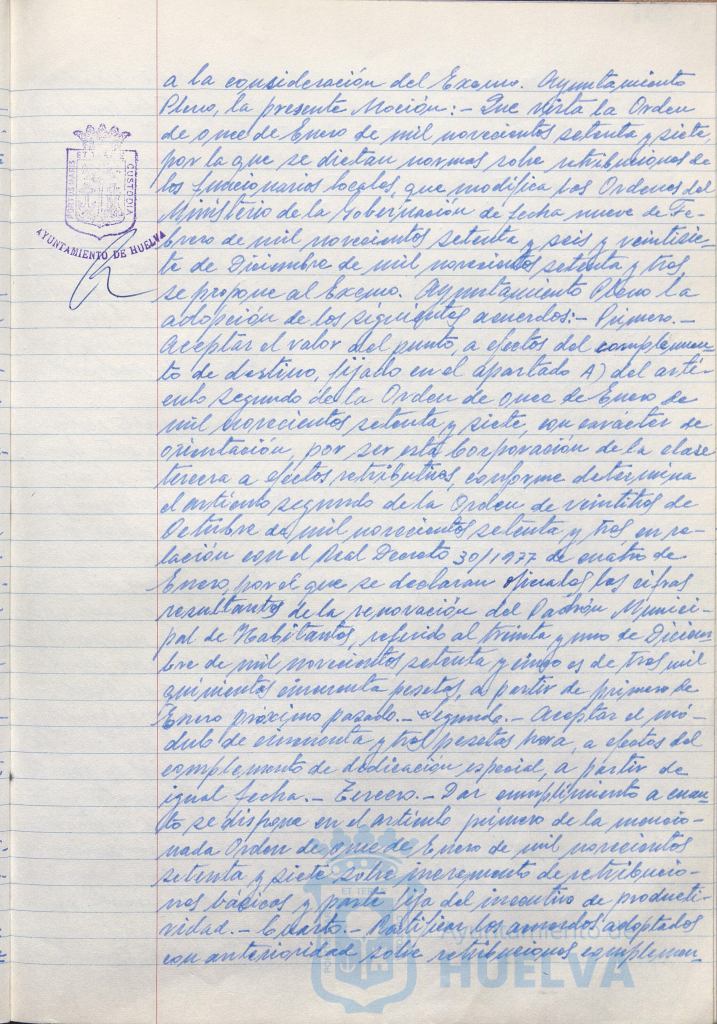 a la consideración del Excmo. Ayuntamiento
Pleno, la presente Moción: - Que vista la Orden
de once de Enero de mil novecientos setenta y siete,
por la que se dictan normas sobre retribuciones de
los funcionarios locales, que modifica las Ordenes del
Ministerio de la Gobernación de fecha nueve de Fe-
brero de mil novecientos setenta y seis y veintisie-
te de Diciembre de mil novecientos setenta y tres,
se propone al Excmo. Ayuntamiento Pleno la
adopción de los siguientes acuerdos: - Primero. -
Aceptar el valor del punto, a efectos del complemen-
to de destino, fijado en el apartado A) del artí-
culo segundo de la Orden de once de Enero de
mil novecientos setenta y siete, con carácter de
orientación, por ser esta Corporación de la clase
tercera a efectos retributivos, conforme determina
el artículo segundo de la Orden de veintitres de
Octubre de mil novecientos setenta y tres en re-
lación con el Real Decreto 30/1977 de cuatro de
Enero, por el que se declaran oficiales las cifras
resultantes de la renovación del Padrón Munici-
pal de Habitantes, referido al treinta y uno de Diciem-
bre de mil novecientos setenta y cinco es de tres mil
quinientas cincuenta pesetas, a partir de primero de
Enero próximo pasado. - Segundo. - Aceptar el mó-
dulo de cincuenta y tres pesetas hora, a efectos del
complemento de dedicación especial, a partir de
igual fecha. - Tercero. - Dar cumplimiento a cuan-
to se dispone en el artículo primero de la mencio-
nada Orden de once de Enero de mil novecientos
setenta y siete sobre incremento de retribucio-
nes básicas y parte fija del incentivo de producti-
vidad. - Cuarto. - Ratificar los acuerdos adoptados
con anterioridad sobre retribuciones complemen-
PORTUS MARIS
CUSTODIA
AYUNTAMIENTO DE HUELVA
Ayuntamiento de
HUELVA